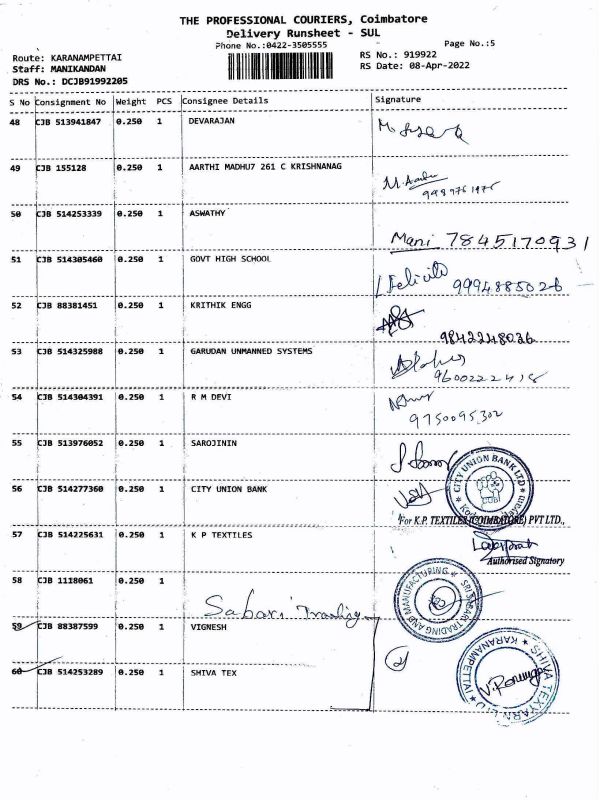 THE PROFESSIONAL COURIERS, Coimbatore
Delivery Runsheet - SUL
Phone No.:0422-3505555
Page No.:5
Route: KARANAMPETTAI
Staff: MANIKANDAN
DRS No.: DCJB91992205
RS No.: 919922
RS Date: 08-Apr-2022
S No Consignment No Weight PCS Consignee Details Signature
48 CJB 513941847 0.250 1 DEVARAJAN
49 CJB 155128 0.250 1 AARTHI MADHU7 261 C KRISHNANAG
50 CJB 514253339 0.250 1 ASWATHY
Mani 7845170931
51 CJB 514305460 0.250 1 GOVT HIGH SCHOOL
9994885026
52 CJB 88381451 0.250 1 KRITHIK ENGG
9842248036
53 CJB 514325988 0.250 1 GARUDAN UNMANNED SYSTEMS
54 CJB 514304391 0.250 1 R M DEVI
9750095302
55 CJB 513976052 0.250 1 SAROJININ
56 CJB 514277360 0.250 1 CITY UNION BANK
CITY UNION BANK LTD
CUB
For K.P. TEXTILES (COIMBATORE) PVT LTD.,
57 CJB 514225631 0.250 1 K P TEXTILES
Authorised Signatory
58 CJB 1118061 0.250 1
Sabari Trading
SRI SABARI TRADING AND MANUFACTURING
59 CJB 88387599 0.250 1 VIGNESH
60 CJB 514253289 0.250 1 SHIVA TEX
KARANAMPETTAI